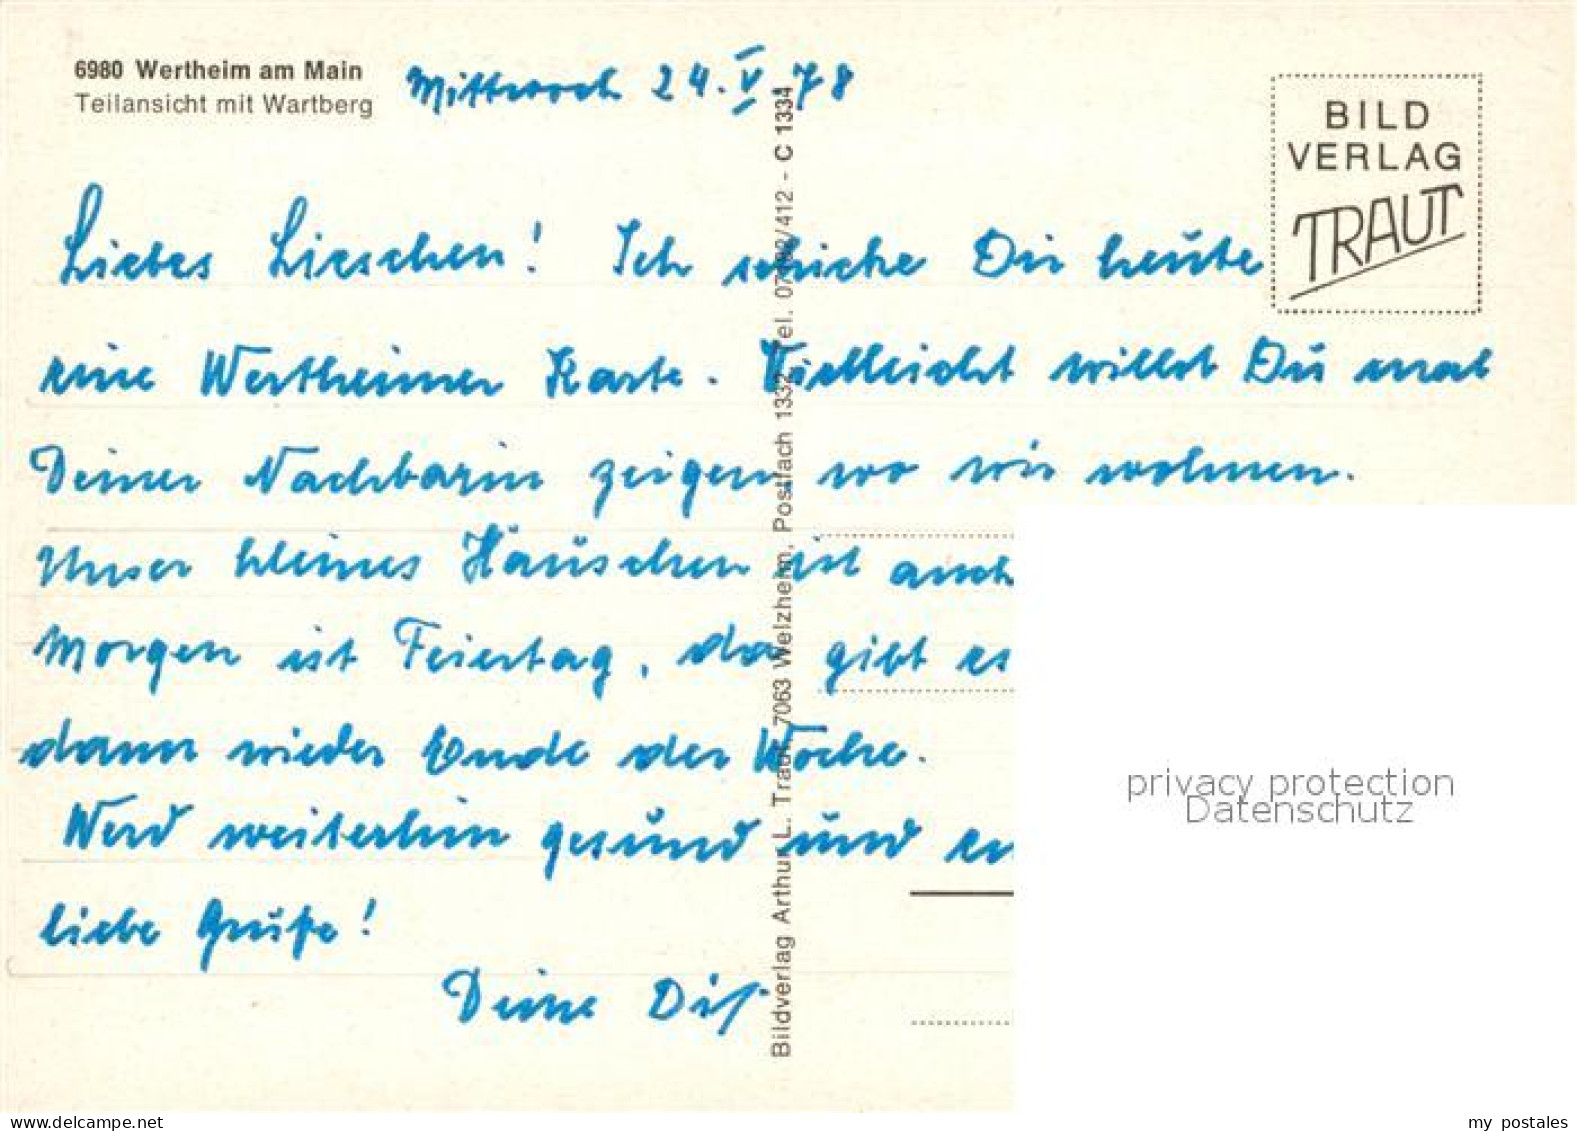 6980 Wertheim am Main
Teilansicht mit Wartberg
Mittwoch 24.V.78
BILD
VERLAG
TRAUT
Liebes Lieschen! Ich schicke Dir heute
eine Wertheimer Karte. Vielleicht willst Du mal
Deiner Nachbarin zeigen wo wir wohnen.
Unser kleines Häuschen ist auch
Morgen ist Feiertag, da gibt es
dann wieder Ende der Woche.
Werd weiterhin gesund und
liebe Grüße!
Deine
Bildverlag Arthur L. Traut, 7063 Welzheim, Postfach 1332, Tel. 07182/412 - C 1334
privacy protection
Datenschutz
my postales